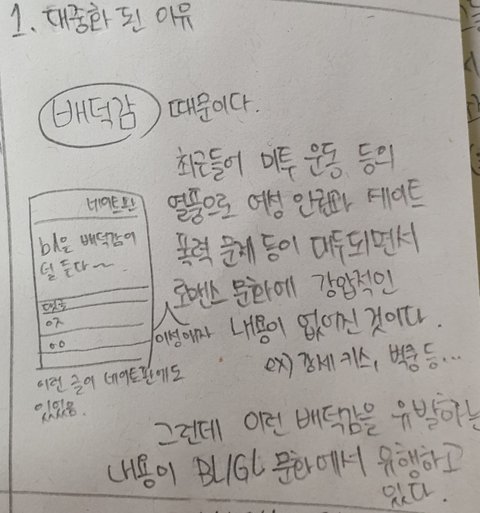 1. 대중화 된 이유
배덕감 때문이다.
최근들어 미투 운동 등의
열풍으로 여성 인권과 데이트
폭력 문제 등이 대두되면서
로맨스 문화에 강압적인
내용이 없어진 것이다.
ex) 강제 키스, 벽쿵 등...
네이트판
bl은 배덕감이
덜 든다~
댓글
ㅇㅈ
ㅇㅇ
이성애자
이런 글이 네이트판에도
있었음.
그런데 이런 배덕감을 유발하는
내용이 BL/GL 문화에서 유행하고
있다.